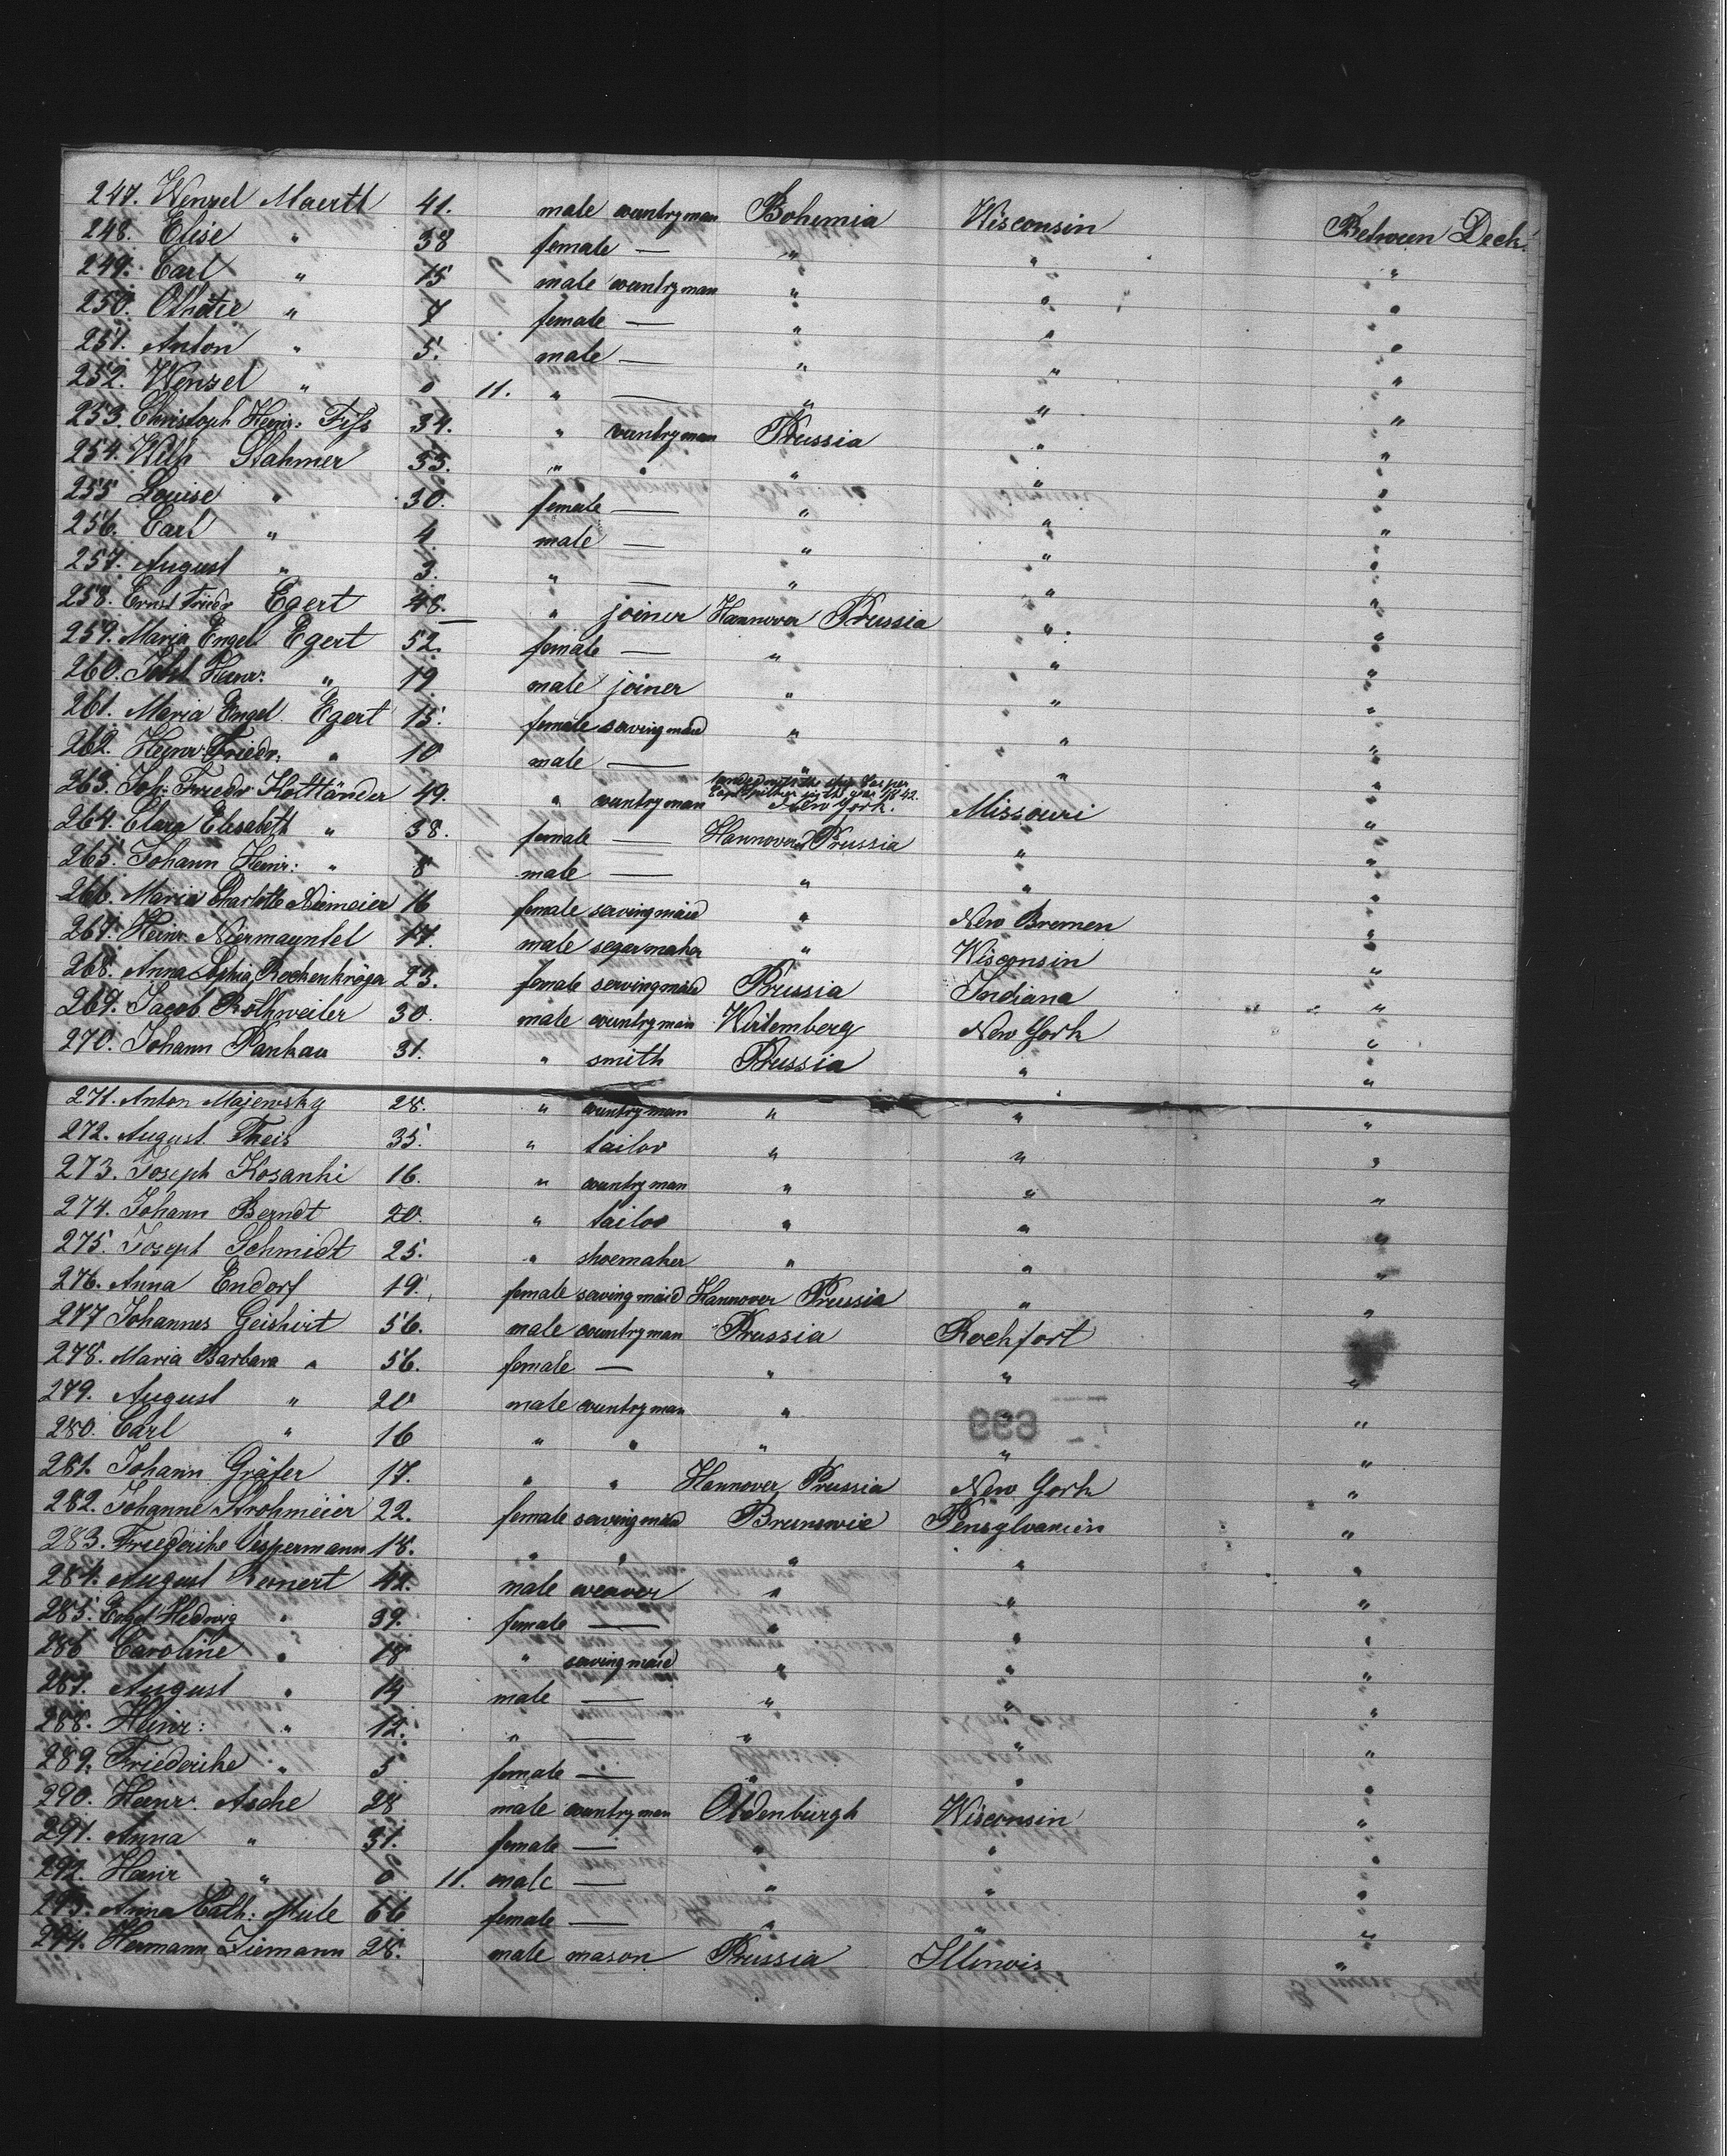 247. Wenzel Maertl 41. male countryman Bohemia Wisconsin Between Deck.
248. Elise " 38 female — " " "
249. Carl " 15 male countryman " " "
250. " 7 female — " " "
251. Anton " 5. male — " " "
252. Wenzel " 0 11. " — " " "
253. Christoph Heinr: Fiss 34. " countryman Prussia " "
254. Wilh Stahmer 33. " " " " "
255 Louise " 30. female — " " "
256. Carl " 4. male — " " "
257. August " 3. " — " " "
258. Ernst Friedr Egert 48. " joiner Hannover Prussia " "
259. Maria Engel Egert 52. female — " " "
260. Heinr: " 19 male joiner " " "
261. Maria Engel. Egert 15. female serving maid " " "
262. Heinr. Friedr. " 10 male — " " "
263. Joh: Friedr Holtländer 49. " countryman landed with the ship in the year 1842. New York. Missouri "
264. Clara Elisabeth " 38. female — Hannover Prussia " "
265. Johann Heinr: " 8 male — " " "
266. Maria Charlotte Niemeier 16 female serving maid " New Bremen "
267. Heinr. 17. male segar maker " Wisconsin "
268. Anna Sophia 23. female serving maid Prussia Indiana "
269. Jacob Rothweiler 30. male countryman Wirtemberg New York "
270. Johann Pankau 31. " smith Prussia " "
271. Anton Majewsky 28. " countryman " " "
272. August Theis 35. " tailor " " "
273. Joseph Kosanki 16. " countryman " " "
274. Johann Berndt 20. " tailor " " "
275. Joseph Schmidt 25. " shoemaker " " "
276. Anna Endorf 19. female serving maid Hannover Prussia " "
277 Johannes Geishirt 56. male countryman Prussia Rockfort
278. Maria Barbara " 56. female — " " "
279. August " 20 male countryman " " "
280. Carl " 16 " " " " "
281. Johann Gräfer 17. " " Hannover Prussia New York "
282. Johanne Strohmeier 22. female serving maid Brunswic Pensylvanien "
283. Friederike Vespermann 18. " " " " "
284. August Reinert 42. male weaver " " "
285. Engel Hedwig " 39. female — " " "
286 Caroline " 18 " serving maid " " "
287. August " 14 male — " " "
288. Heinr: " 12. " — " " "
289. Friederike " 5 female — " " "
290. Heinr. Asche 28 male countryman Oldenburgh Wisconsin "
291. Anna " 31. female — " " "
292. Heinr " 0 11. male — " " "
293. Anna Cath: 66 female — " " "
294. Hermann Ziemann 28. male mason Prussia Illinois "